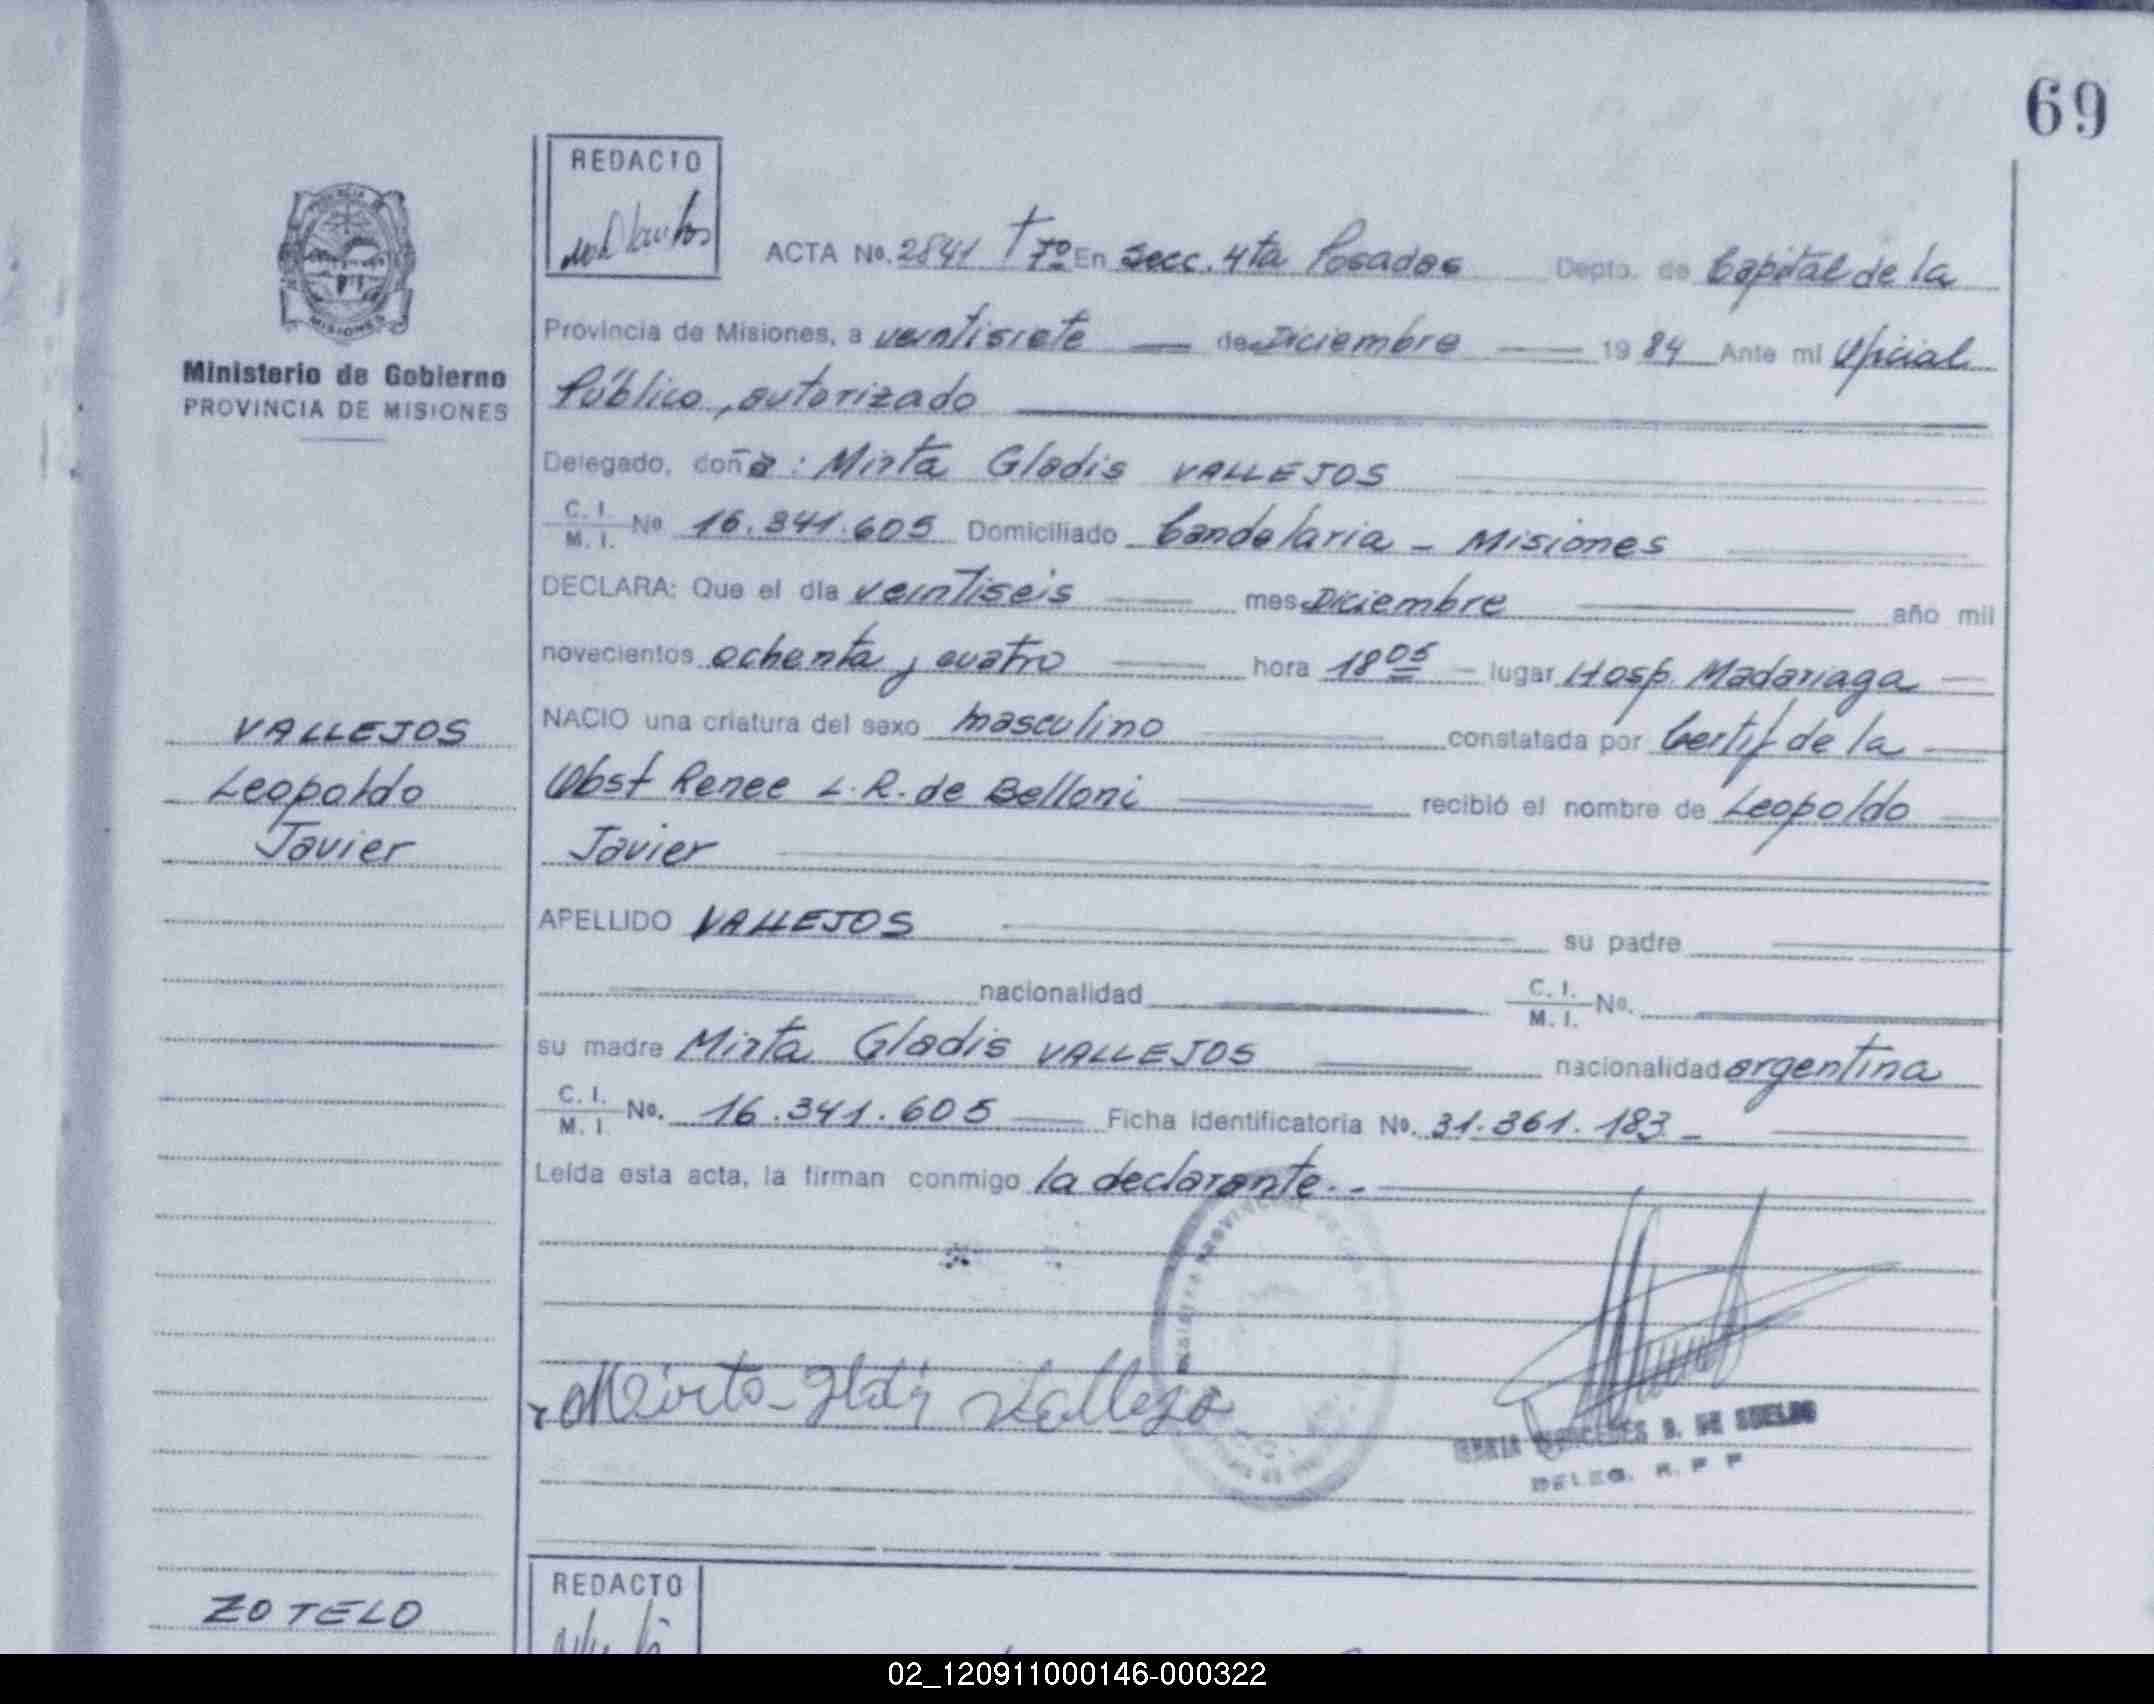 69
REDACTO
ACTA No. 2841 Tº 7º En Secc. 4ta Posadas Depto. de Capital de la
Ministerio de Gobierno
PROVINCIA DE MISIONES
Provincia de Misiones, a veintisiete de Diciembre 19 84 Ante mí Oficial
Público, autorizado
Delegado, doña: Mirta Gladis VALLEJOS
C. I.
M. I. No 16.341.605 Domiciliado Candelaria - Misiones
DECLARA: Que el día veintiseis mes Diciembre año mil
novecientos ochenta y cuatro hora 18 05 - lugar Hosp. Madariaga
VALLEJOS
Leopoldo
Javier
NACIO una criatura del sexo masculino constatada por Certif de la
Obst Renee L. R. de Belloni recibió el nombre de Leopoldo
Javier
APELLIDO VALLEJOS su padre
nacionalidad C. I.
M. I. No.
su madre Mirta Gladis VALLEJOS nacionalidad argentina
C. I.
M. I No. 16.341.605 Ficha Identificatoria No. 31.361.183.-
Leída esta acta, la firman conmigo la declarante.-
Mirta Gladis Vallejo
DELEG. R. P. P
REDACTO
ZOTELO
02_120911000146-000322